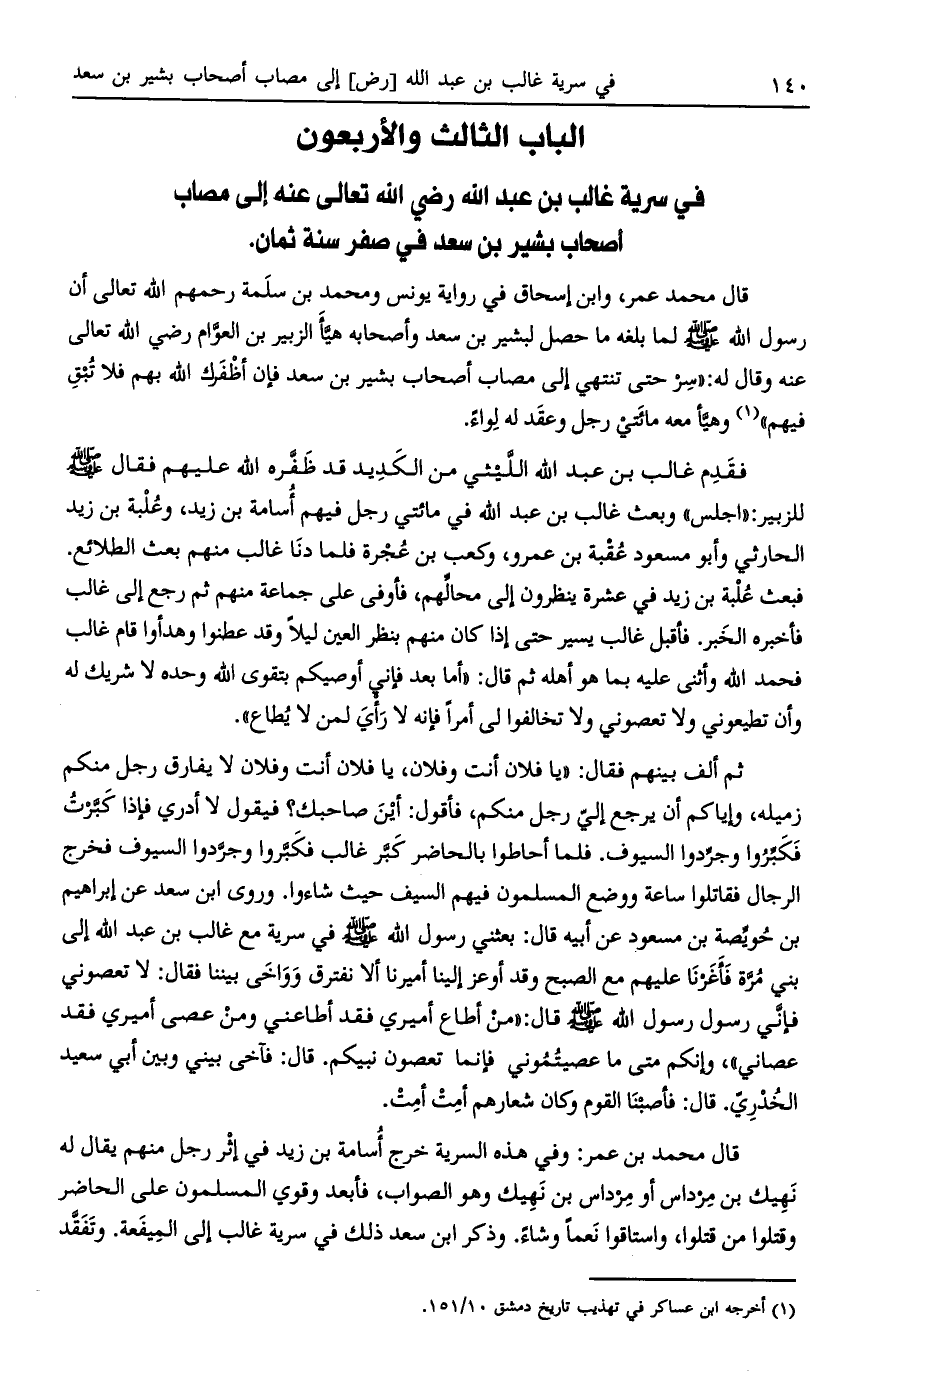 ١٤٠ في سرية غالب بن عبد الله [رض] إلى مصاب أصحاب بشير بن سعد
الباب الثالث والأربعون
في سرية غالب بن عبد الله رضي الله تعالى عنه إلى مصاب
أصحاب بشير بن سعد في صفر سنة ثمان.
قال محمد عمر، وابن إسحاق في رواية يونس ومحمد بن سلَمة رحمهم الله تعالى أن
رسول الله ﷺ لما بلغه ما حصل لبشير بن سعد وأصحابه هيَّأَ الزبير بن العوَّام رضي الله تعالى
عنه وقال له:«سِرْ حتى تنتهي إلى مصاب أصحاب بشير بن سعد فإن أظْفَرك الله بهم فلا تُبْقِ
فيهم»(١) وهيَّأ معه مائَتيْ رجل وعقَد له لِواءً.
فقَدِم غالب بن عبد الله اللَّيْثي من الكَدِيد قد ظَفَّره الله عليهم فقال ﷺ
للزبير:«اجلس» وبعث غالب بن عبد الله في مائتي رجل فيهم أُسامة بن زيد، وعُلْبة بن زيد
الحارثي وأبو مسعود عُقْبة بن عمرو، وكعب بن عُجْرة فلما دنَا غالب منهم بعث الطلائع.
فبعث عُلْبة بن زيد في عشرة ينظرون إلى محالِّهم، فأوفى على جماعة منهم ثم رجع إلى غالب
فأخبره الخَبر. فأقبل غالب يسير حتى إذا كان منهم بنظر العين ليلاً وقد عطنوا وهدأوا قام غالب
فحمد الله وأثنى عليه بما هو أهله ثم قال: «أما بعد فإني أوصيكم بتقوى الله وحده لا شريك له
وأن تطيعوني ولا تعصوني ولا تخالفوا لى أمراً فإنه لا رَأْيَ لمن لا يُطاع».
ثم ألف بينهم فقال: «يا فلان أنت وفلان، يا فلان أنت وفلان لا يفارق رجل منكم
زميله، وإياكم أن يرجع إليّ رجل منكم، فأقول: أيْنَ صاحبك؟ فيقول لا أدري فإذا كَبَّرْتُ
فَكَبِّرُوا وجرِّدوا السيوف. فلما أحاطوا بالحاضر كَبَّر غالب فكَبَّروا وجرَّدوا السيوف فخرج
الرجال فقاتلوا ساعة ووضع المسلمون فيهم السيف حيث شاءوا. وروى ابن سعد عن إبراهيم
بن حُويِّصة بن مسعود عن أبيه قال: بعثني رسول الله ﷺ في سرية مع غالب بن عبد الله إلى
بني مُرَّة فَأَغَرْنَا عليهم مع الصبح وقد أوعز إلينا أميرنا ألا نفترق وَوَاخَى بيننا فقال: لا تعصوني
فإنَّي رسول رسول الله ﷺ قال:«منْ أطاع أميري فقد أطاعني ومنْ عصى أميري فقد
عصاني»، وإنكم متى ما عصيتُمُوني فإنما تعصون نبيكم. قال: فآخى بيني وبين أبي سعيد
الخُدْرِيّ. قال: فأصبْنَا القوم وكان شعارهم أمِتْ أمِتْ.
قال محمد بن عمر: وفي هذه السرية خرج أُسامة بن زيد في إثْر رجل منهم يقال له
نَهِيك بن مِرْداس أو مِرْداس بن نَهِيك وهو الصواب، فأبعد وقوي المسلمون على الحاضر
وقتلوا من قتلوا، واستاقوا نَعماً وشاءً. وذكر ابن سعد ذلك في سرية غالب إلى المِيفَعة. وتَفَقَّد
(١) أخرجه ابن عساكر في تهذيب تاريخ دمشق ١٥١/١٠.